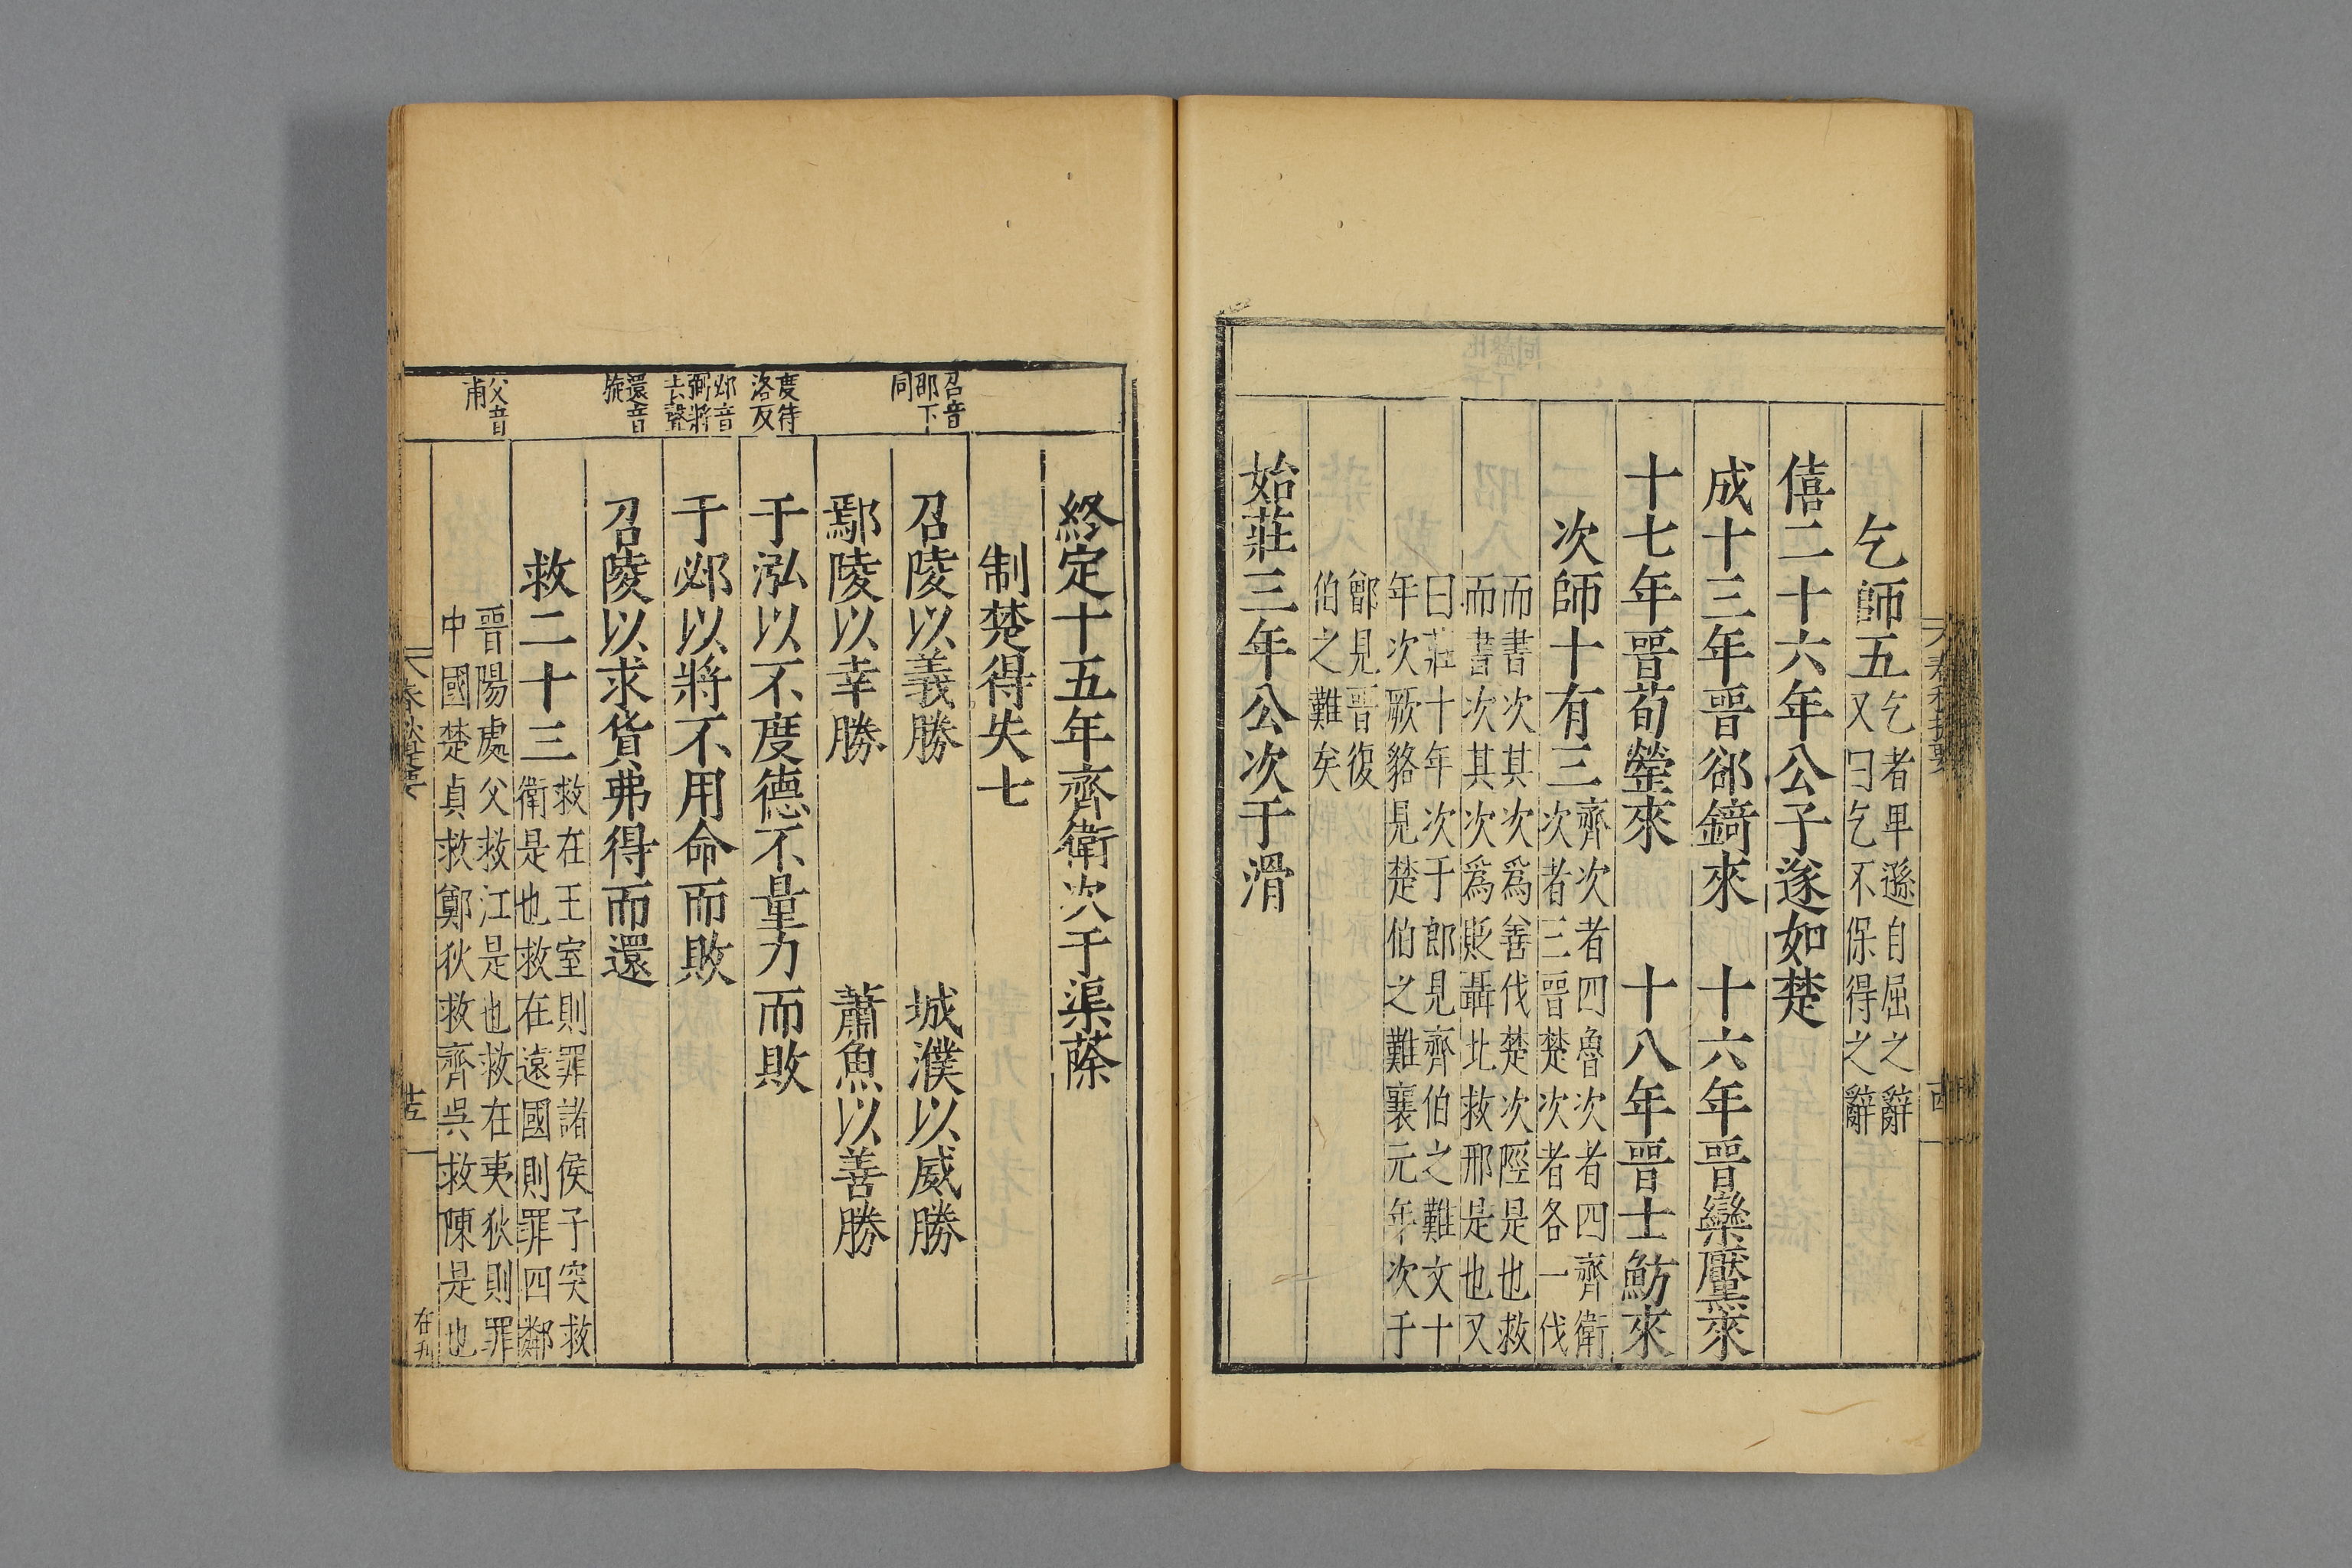 乞師五乞者卑遜自屈之辭
又曰乞不保得之辭
僖二十六年公子遂如楚
成十三年晉郤錡來 十六年晉欒黶來
十七年晉荀罃來 十八年晉士魴來
次師十有三齊次者四魯次者四齊衛
次者三晉楚次者各一伐
而書次其次爲善伐楚次陘是也救
而書次其次爲貶聶北救邢是也又
曰莊十年次于郎見齊伯之難文十
年次厥貉見楚伯之難襄元年次于
鄫見晉復
伯之難矣
始莊三年公次于滑
春秋提要
終定十五年齊衛次于渠蒢
制楚得失七
召音
邵下
同
召陵以義勝 城濮以威勝
鄢陵以幸勝 蕭魚以善勝
度待
洛反
于泓以不度德不量力而敗
邲音
弼將
去聲
于邲以將不用命而敗
還音
旋
召陵以求貨弗得而還
救二十三救在王室則罪諸侯子突救
衛是也救在遠國則罪四鄰
父音
甫
晉陽處父救江是也救在夷狄則罪
中國楚貞救鄭狄救齊吳救陳是也
春秋提要